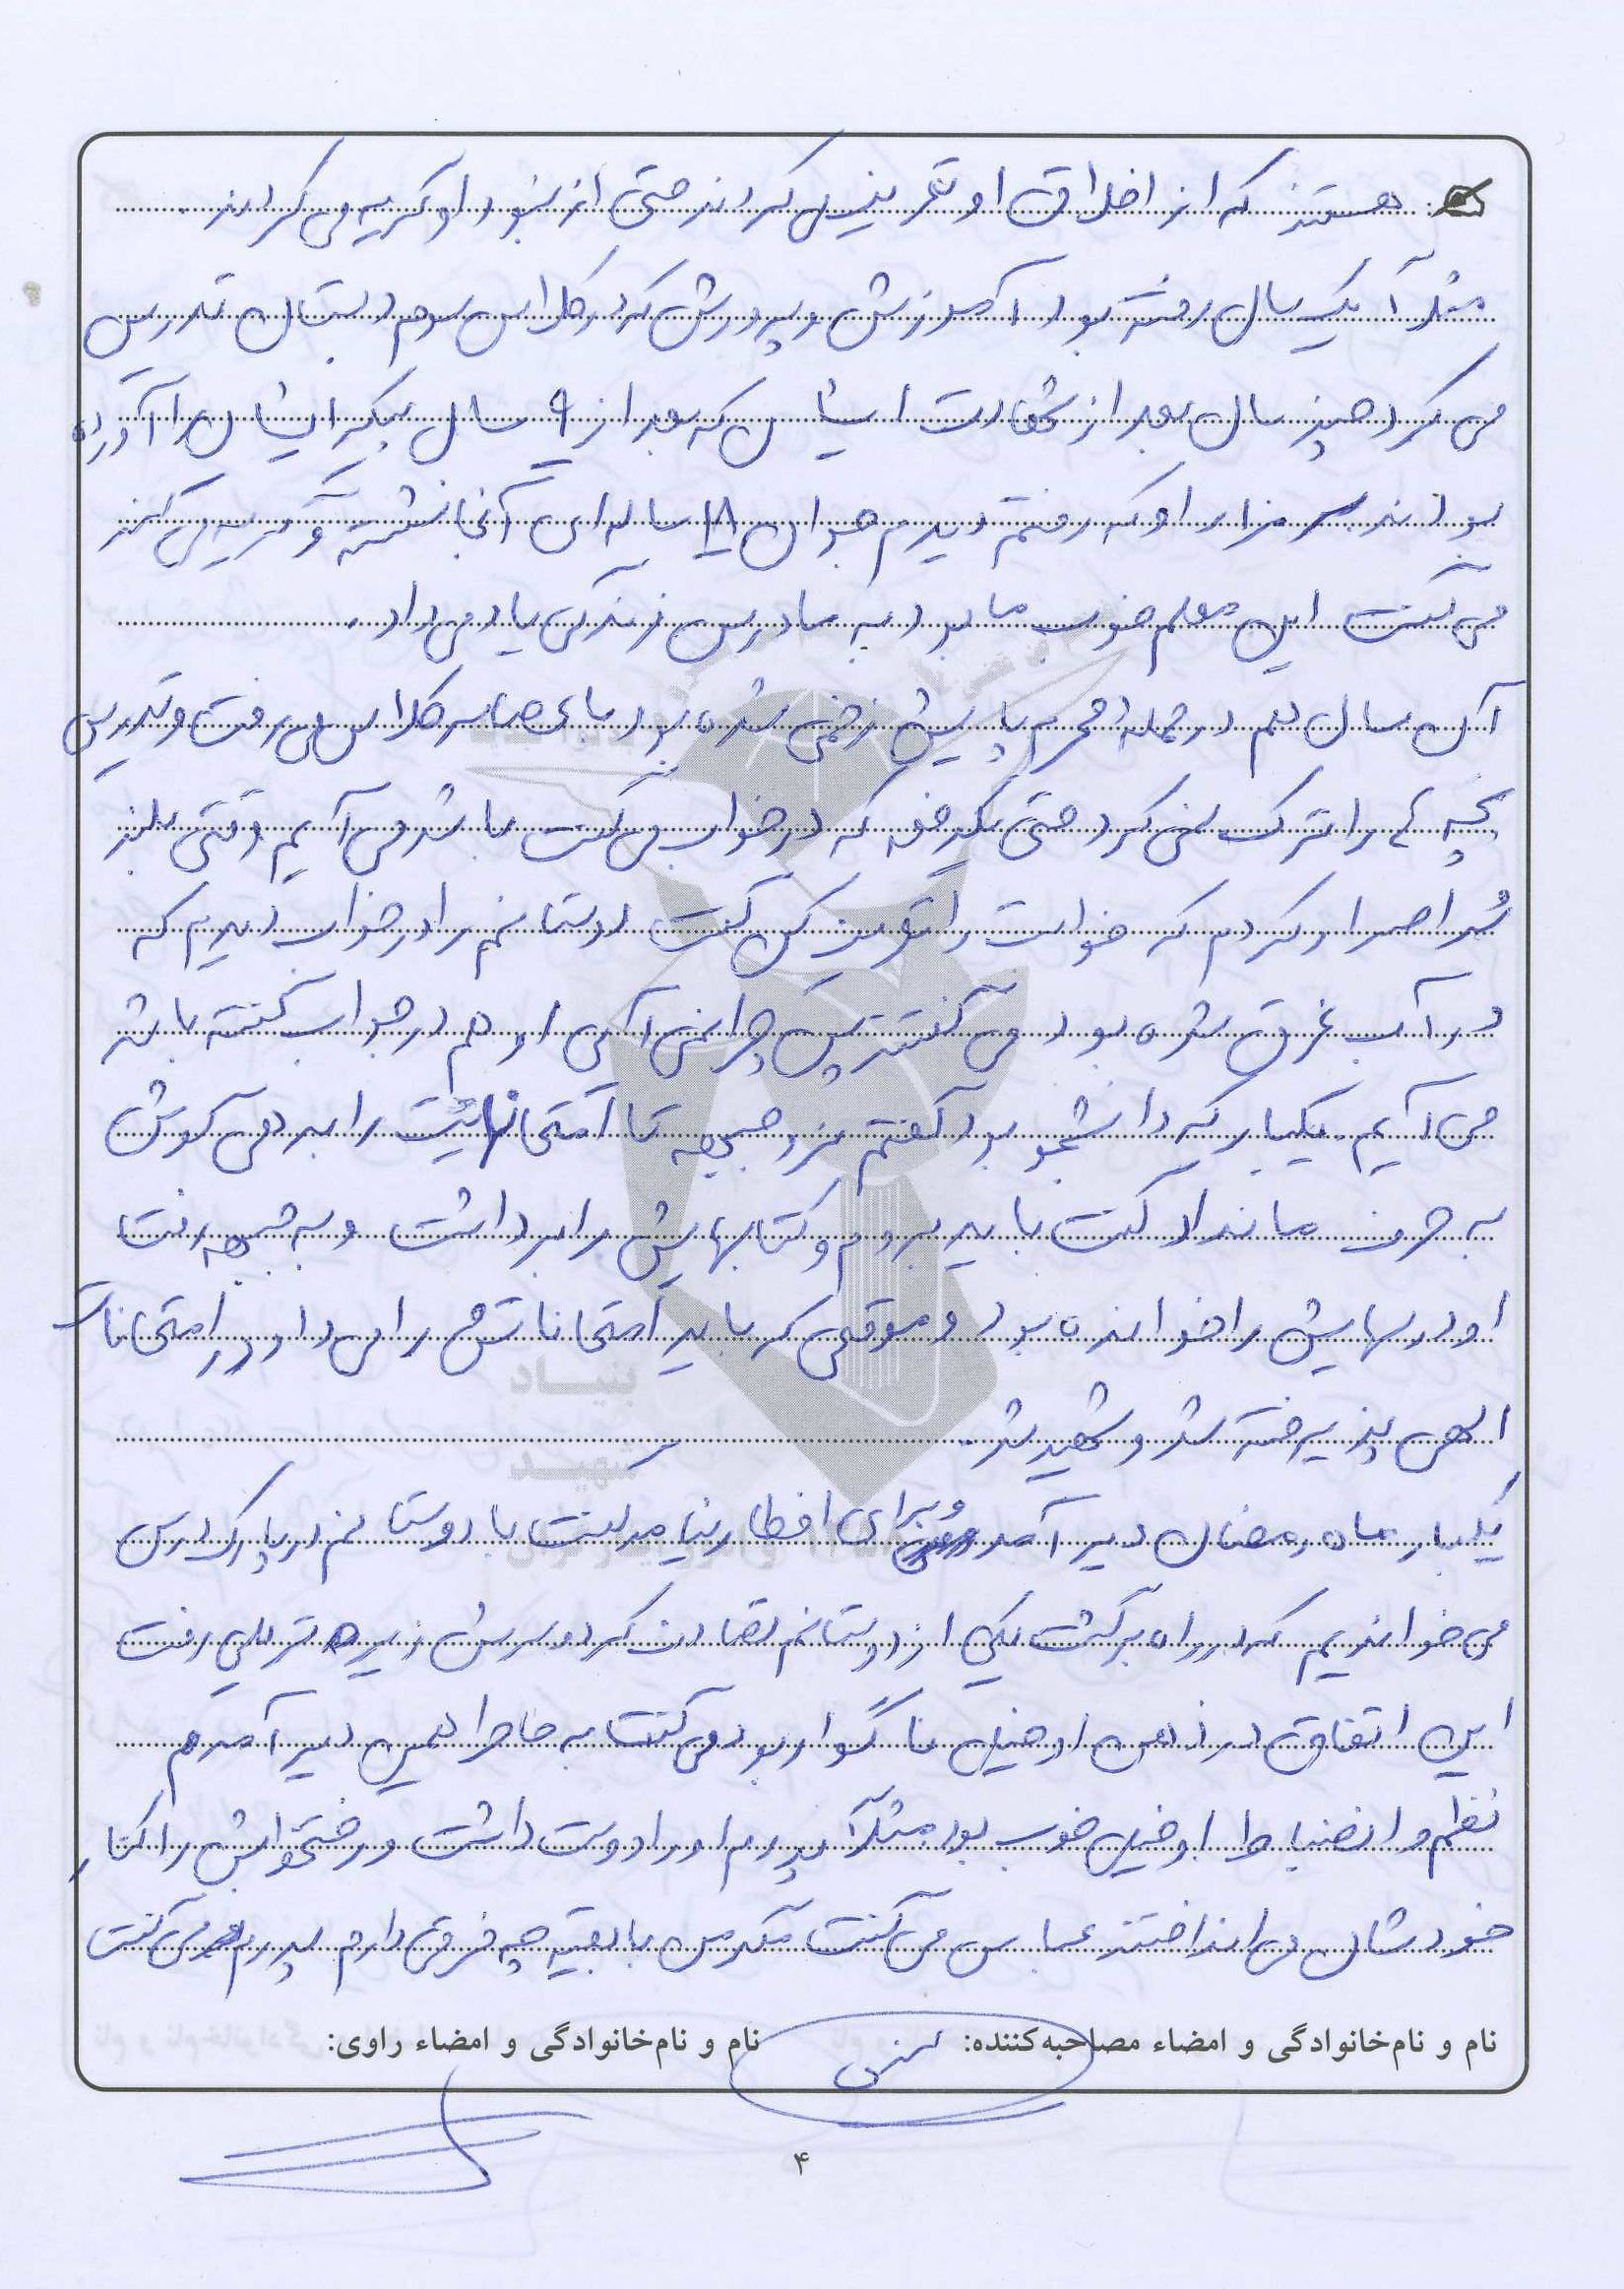 هستند که از اخلاق او تعریف می کردند حتی از نبود او گریه می کردند
مثلاً یک سال رفته بود آموزش و پرورش که در کلاس سوم دبستان تدریس
می کرد چند سال بعد از شهادت ایشان که بعد از ۹ سال پیکر ایشان را آورده
بودند سر مزار او که رفتم دیدم جوان ۱۸ ساله ای آنجا نشسته و گریه می کند
می گفت این معلم خوب ما بود به ما درس زندگی یاد می داد.
آن سال هم در حمله محرم پایش زخمی شده بود با عصا سر کلاس می رفت و تدریس
بچه ها را ترک نمی کرد حتی یکدفعه که در خواب می گفت باشد می آیم وقتی بلند
شد اصرار کردم که خوابت را تعریف کن گفت دوستانم را در خواب دیدم که
در آب غرق شده بود می گفتند پس چرا نمی آئی او هم در جواب گفته باشد
می آیم. یکبار که دانشجو بود گفتم نرو جبهه تا امتحاناتت را بدهی گوش
به حرف ما نداد گفت باید بروم و کتابهایش را برداشت و به جبهه رفت
او درسهایش را خوانده بود و موقعی که باید امتحاناتش را می داد در امتحانات
الهی پذیرفته شد و شهید شد.
یکبار ماه رمضان دیر آمد و برای افطار نیامد گفت با دوستانم در پارک درس
می خواندیم که در راه برگشت یکی از دوستانم تصادف کرد و سرش زیر تریلی رفت
این اتفاق در ذهن او خیلی ناگوار بود می گفت به خاطر همین دیر آمدم
نظم و انضباط او خیلی خوب بود مثلاً پدرم او را دوست داشت و رختخوابش را کنار
خودشان می انداختند عباس می گفت مگر من با بقیه چه فرقی دارم پدرم می گفت
نام و نام‌خانوادگی و امضاء مصاحبه‌کننده: نام و نام‌خانوادگی و امضاء راوی:
۴
بنیاد
شهید